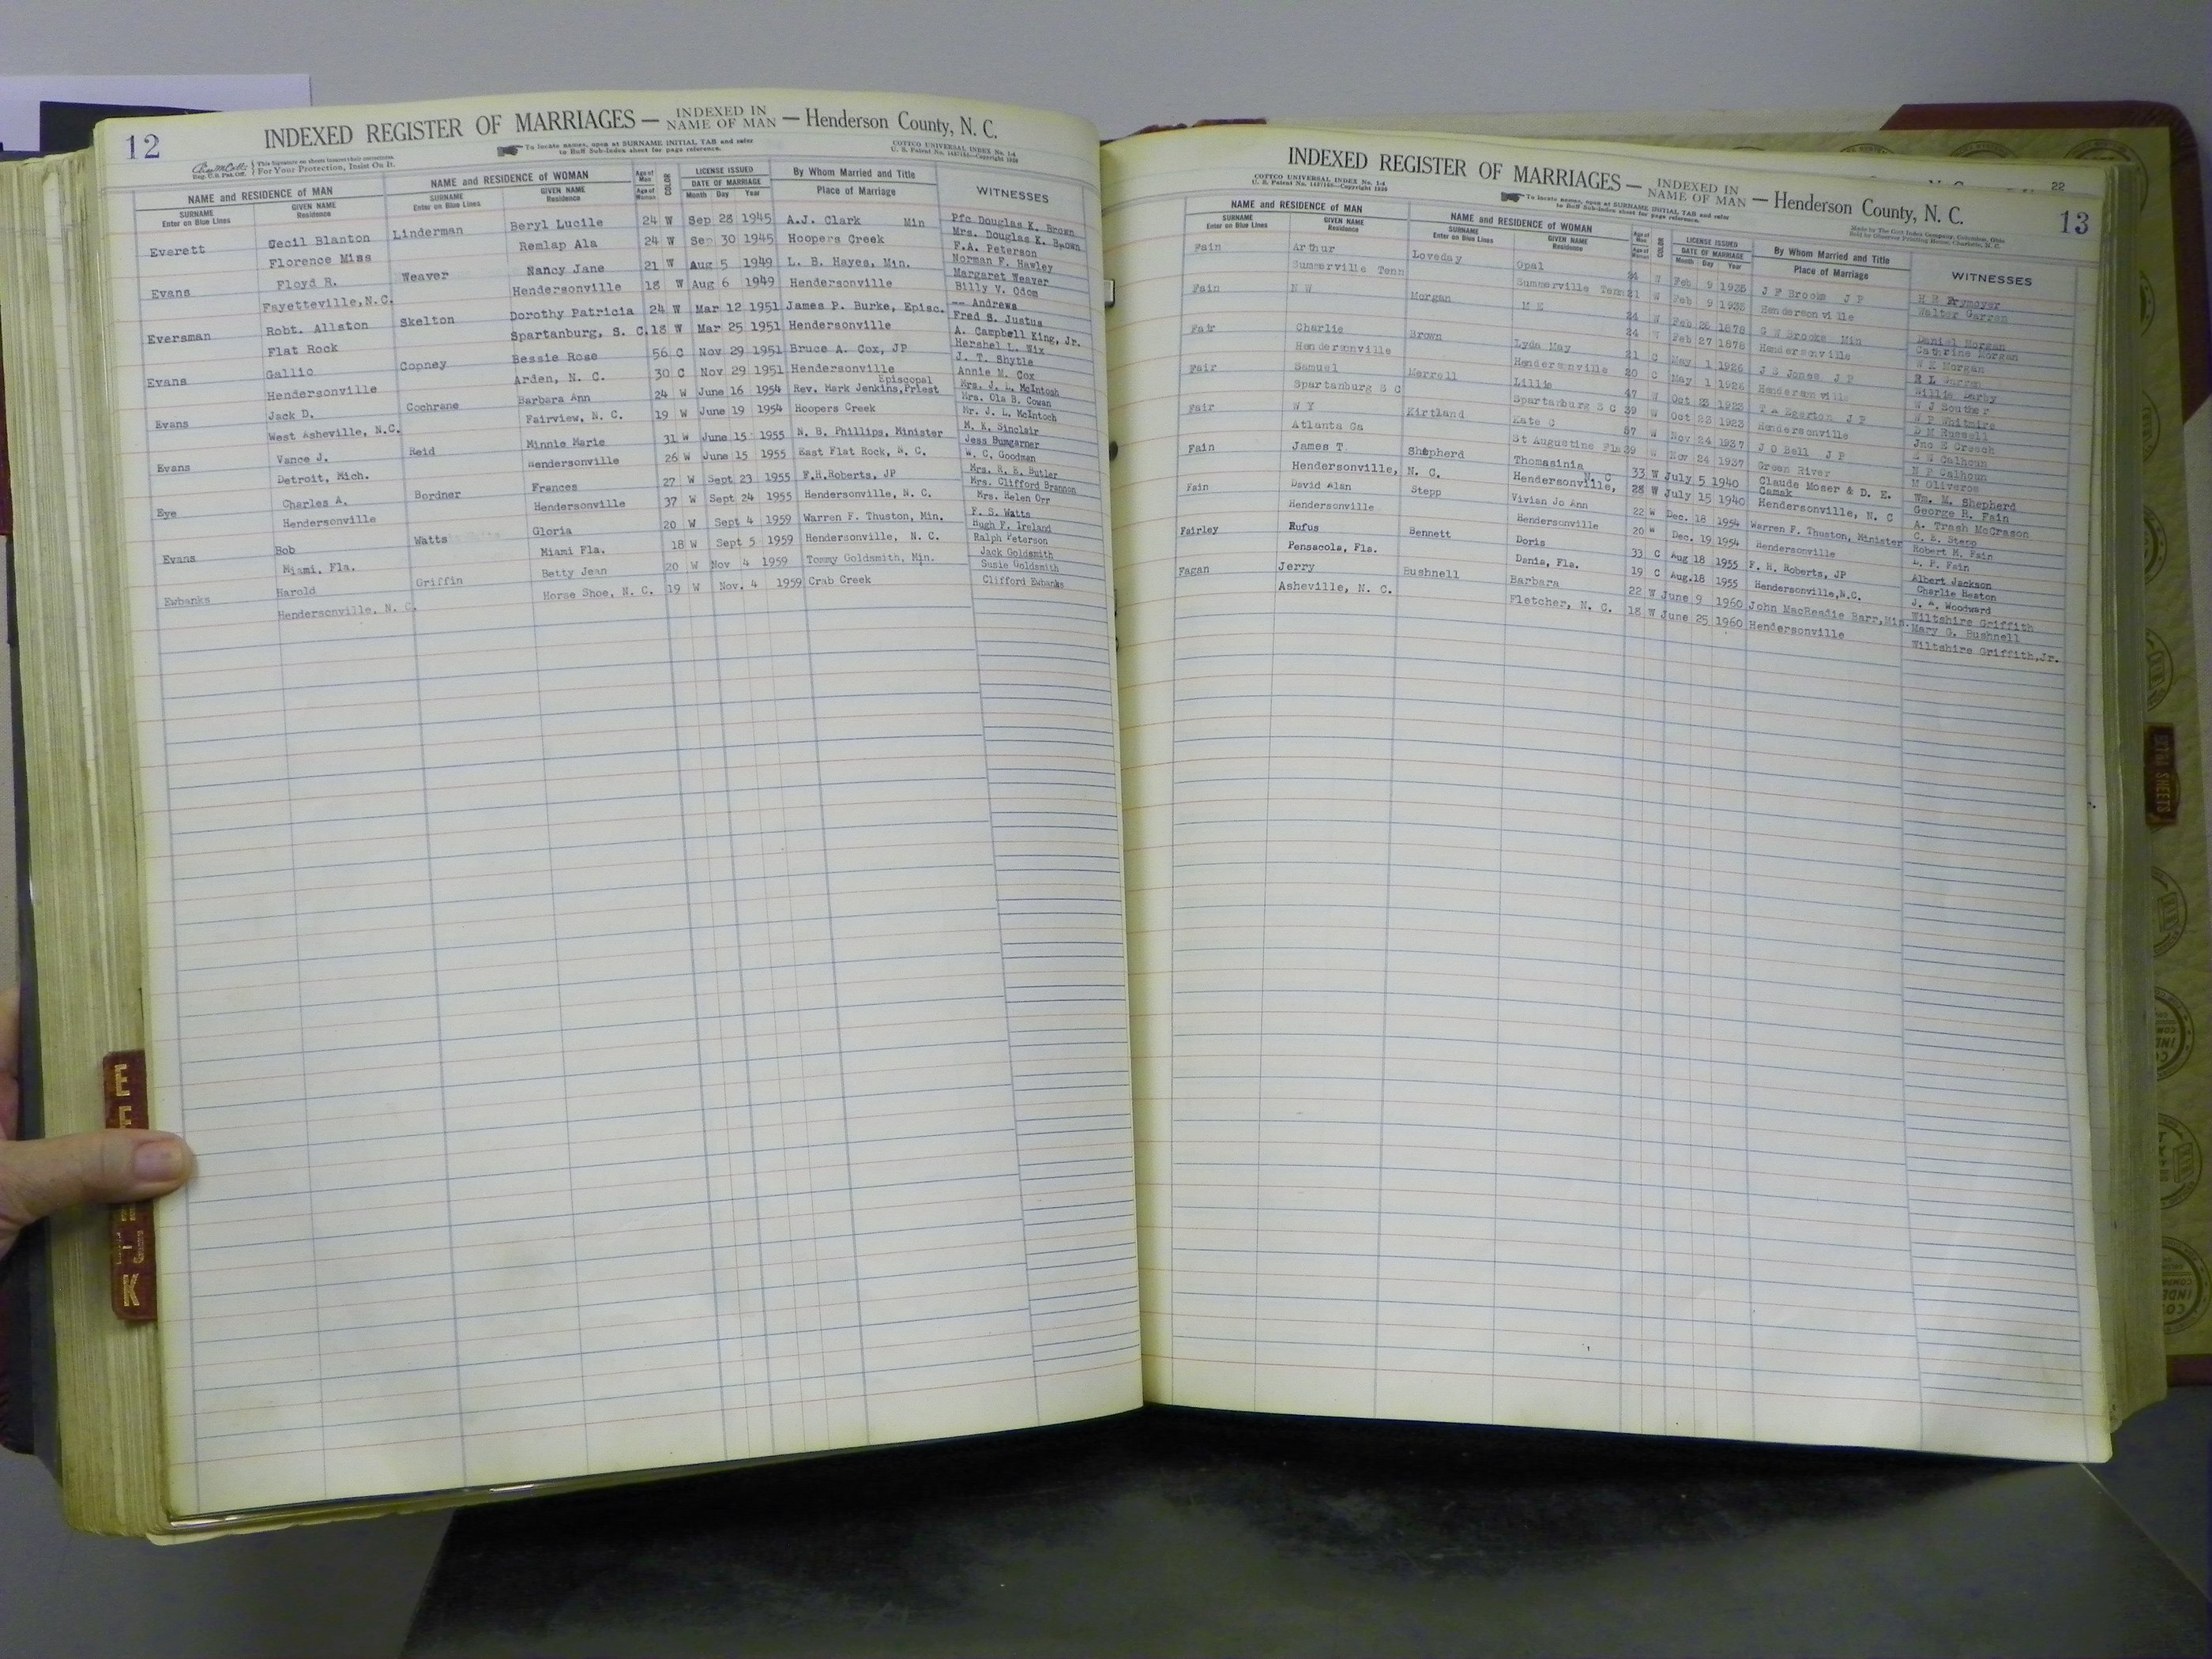 12
INDEXED REGISTER OF MARRIAGES — INDEXED IN NAME OF MAN — Henderson County, N. C.
To locate names, open at SURNAME INITIAL TAB and refer to Buff Sub-Index sheet for page reference.
COTTCO UNIVERSAL INDEX No. 1-4
This Signature on sheets insures their correctness.
For Your Protection, Insist On It.
NAME and RESIDENCE of MAN NAME and RESIDENCE of WOMAN Age of Man COLOR LICENSE ISSUED By Whom Married and Title WITNESSES
SURNAME Enter on Blue Lines GIVEN NAME Residence SURNAME Enter on Blue Lines GIVEN NAME Residence Age of Woman DATE OF MARRIAGE Month Day Year Place of Marriage
Everett Cecil Blanton Linderman Beryl Lucile 24 W Sep 28 1945 A.J. Clark Min Pfc Douglas K. Brown
Mrs. Douglas K. Brown
Florence Miss Remlap Ala 24 W Sep 30 1945 Hoopers Creek F.A. Peterson
Evans Floyd R. Weaver Nancy Jane 21 W Aug 5 1949 L. B. Hayes, Min. Norman F. Hawley
Margaret Weaver
Fayetteville, N.C. Hendersonville 18 W Aug 6 1949 Hendersonville Billy V. Odom
Eversman Robt. Allston Skelton Dorothy Patricia 24 W Mar 12 1951 James P. Burke, Episc. -- Andrews
Fred S. Justus
Flat Rock Spartanburg, S. C. 18 W Mar 25 1951 Hendersonville A. Campbell King, Jr.
Evans Gallic Copney Bessie Rose 56 C Nov 29 1951 Bruce A. Cox, JP Hershel L. Wix
J. T. Shytle
Hendersonville Arden, N. C. 30 C Nov 29 1951 Hendersonville Annie M. Cox
Evans Jack D. Cochrane Barbara Ann 24 W June 16 1954 Rev. Mark Jenkins, Episcopal Priest Mrs. J. L. McIntosh
Mrs. Ola B. Cowan
West Asheville, N.C. Fairview, N. C. 19 W June 19 1954 Hoopers Creek Mr. J. L. McIntoch
Evans Vance J. Reid Minnie Marie 31 W June 15 1955 N. B. Phillips, Minister M. K. Sinclair
Jess Bumgarner
Detroit, Mich. Hendersonville 26 W June 15 1955 East Flat Rock, N. C. W. C. Goodman
Eye Charles A. Bordner Frances 27 W Sept 23 1955 F.H.Roberts, JP Mrs. R. E. Butler
Mrs. Clifford Brannon
Hendersonville Hendersonville 37 W Sept 24 1955 Hendersonville, N. C. Mrs. Helen Orr
Evans Bob Watts Gloria 20 W Sept 4 1959 Warren F. Thuston, Min. F. S. Watts
Hugh F. Ireland
Miami, Fla. Miami Fla. 18 W Sept 5 1959 Hendersonville, N. C. Ralph Peterson
Ewbanks Harold Griffin Betty Jean 20 W Nov 4 1959 Tommy Goldsmith, Min. Jack Goldsmith
Susie Goldsmith
Hendersonville, N. C. Horse Shoe, N. C. 19 W Nov. 4 1959 Crab Creek Clifford Ewbanks
E
K
22
13
INDEXED REGISTER OF MARRIAGES — INDEXED IN NAME OF MAN — Henderson County, N. C.
COTTCO UNIVERSAL INDEX No. 1-4
To locate names, open at SURNAME INITIAL TAB and refer to Buff Sub-Index sheet for page reference.
NAME and RESIDENCE of MAN NAME and RESIDENCE of WOMAN Age of Man COLOR LICENSE ISSUED By Whom Married and Title WITNESSES
SURNAME Enter on Blue Lines GIVEN NAME Residence SURNAME Enter on Blue Lines GIVEN NAME Residence Age of Woman DATE OF MARRIAGE Month Day Year Place of Marriage
Fain Arthur Loveday Opal 24 W Feb 9 1935 J F Brooks J P
Summerville Tenn Summerville Tenn 21 W Feb 9 1935 Hendersonville Walter Garren
Fain N W Morgan M E 24 W Feb 26 1878 G W Brooks Min Daniel Morgan
Cathrine Morgan
24 W Feb 27 1878 Hendersonville Morgan
Fair Charlie Brown Lyda May 21 C May 1 1926 J B Jones J P
Hendersonville Hendersonville 20 C May 1 1926 Hendersonville W J Souther
Fair Samuel Merrell Lillie 47 W Oct 23 1923 T A Egerton J P W P Whitmire
Spartanburg S C Spartanburg S C 39 W Oct 23 1923 Hendersonville Jno E Creech
Fair W Y Kirtland Kate C 57 W Nov 24 1937 J O Bell J P Calhoun
N P Calhoun
Atlanta Ga St Augustine Fla 39 W Nov 24 1937 Green River M Oliveros
Fain James T. Shepherd Thomasinia 33 W July 5 1940 Claude Moser & D. E. Camak Wm. M. Shepherd
George R. Fain
Hendersonville, N. C. Hendersonville, N C 28 W July 15 1940 Hendersonville, N. C A. Trash McCrason
Fain David Alan Stepp Vivian Jo Ann 22 W Dec. 18 1954 Warren F. Thuston, Minister C. E. Stepp
Robert M. Fain
Hendersonville Hendersonville 20 W Dec. 19 1954 Hendersonville L. F. Fain
Fairley Rufus Bennett Doris 33 C Aug 18 1955 F. H. Roberts, JP Albert Jackson
Charlie Heaton
Pensacola, Fla. Dania, Fla. 19 C Aug.18 1955 Hendersonville,N.C. J. A. Woodward
Fagan Jerry Bushnell Barbara 22 W June 9 1960 John MacReadie Barr,Min. Wiltshire Griffith
Mary G. Bushnell
Asheville, N. C. Fletcher, N. C. 18 W June 25 1960 Hendersonville Wiltshire Griffith,Jr.
EXTRA SHEETS